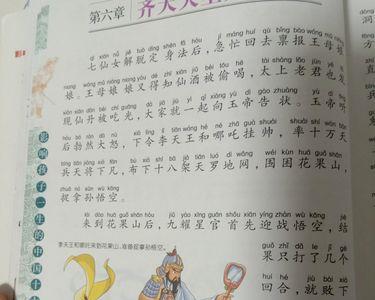 第六章 齐天大
qī xiān nǚ jiě tuō dìng shēn fǎ hòu jí máng huí qù bǐng bào wáng mǔ niáng
七仙女解脱定身法后,急忙回去禀报王母娘
niang wáng mǔ niáng niang yòu dé zhī xiān jiǔ bèi tōu hē tài shàng lǎo jūn yě fā
娘。王母娘娘又得知仙酒被偷喝,太上老君也发
xiàn xiān dān bèi chī guāng dà jiā jiù yì qǐ xiàng yù dì gào zhuàng yù dì tīng
现仙丹被吃光,大家就一起向玉帝告状。玉帝听
hòu bó rán dà nù xià lìng lǐ tiān wáng hé né zhā guà shuài shuài shí wàn tiān
后勃然大怒,下令李天王和哪吒挂帅,率十万天
bīng tiān jiàng xià fán bù xià shí bā jià tiān luó dì wǎng wéi kùn huā guǒ shān
兵天将下凡,布下十八架天罗地网,围困花果山,
zhuō ná sūn wù kōng
捉拿孙悟空。
lái dào huā guǒ shān hòu jiǔ yào xīng guān shǒu xiān yíng zhàn wù kōng jié
来到花果山后,九曜星官首先迎战悟空,结
guǒ zhǐ dǎ le jǐ gè
果只打了几个
huí hé jiù bài xià
回合,就败下
李天王和哪吒来到花果山,准备捉拿孙悟空。
影响孩子一生的中国十